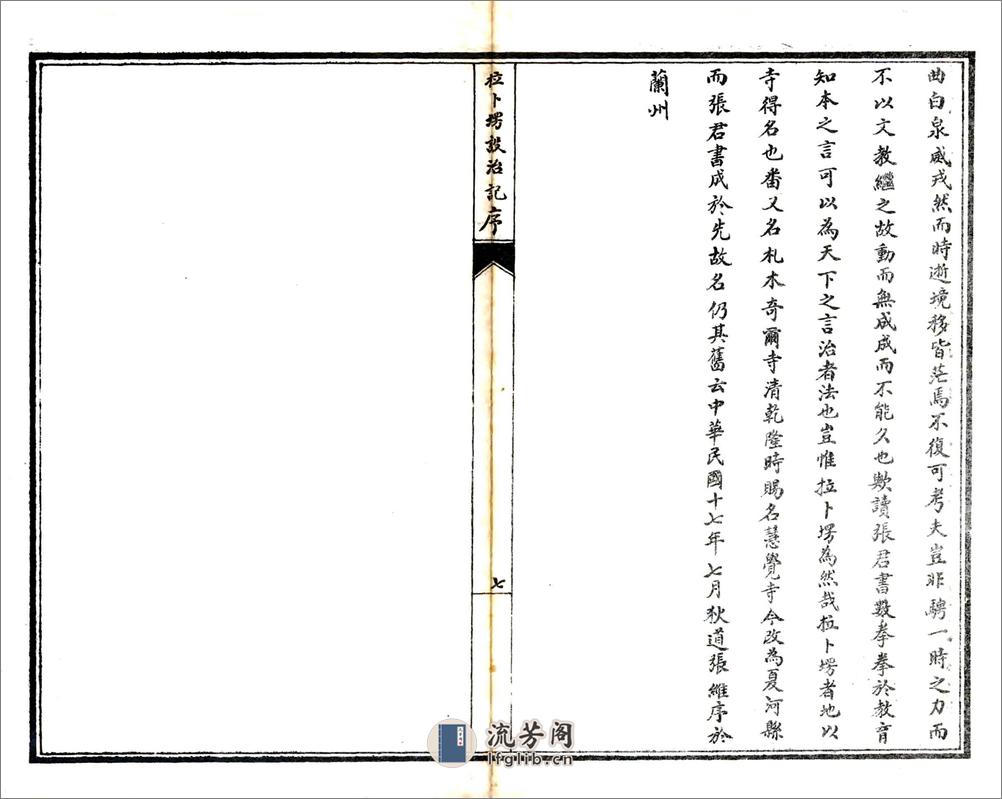 曲白泉威戎然而時逝境移皆茫焉不復可考夫豈非騁一時之力而
不以文教繼之故動而無成成而不能久也歟讀張君書數拳拳於教育
知本之言可以為天下之言治者法也豈惟拉卜塄為然哉拉卜塄者地以
寺得名也番又名札木奇爾寺清乾隆時賜名慧覺寺今改為夏河縣
而張君書成於先故名仍其舊云中華民國十七年七月狄道張維序於
蘭州
拉卜塄設治記序
七
流芳阁
lfglib.cn